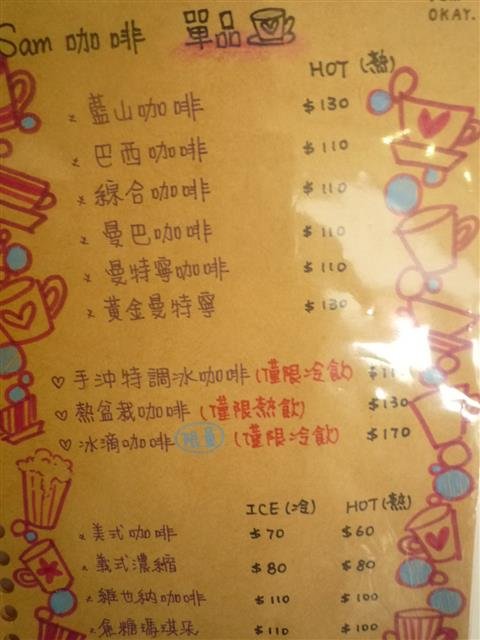 OKAY.
Sam 咖啡 單品
HOT (熱)
藍山咖啡 $130
巴西咖啡 $110
綜合咖啡 $110
曼巴咖啡 $110
曼特寧咖啡 $110
黃金曼特寧 $130
手沖特調冰咖啡 (僅限冷飲)
熱盆栽咖啡 (僅限熱飲) $130
冰滴咖啡 限量 (僅限冷飲) $170
ICE (冷) HOT (熱)
美式咖啡 $70 $60
義式濃縮 $80 $80
維也納咖啡 $110 $100
焦糖瑪琪朵 $110 $100